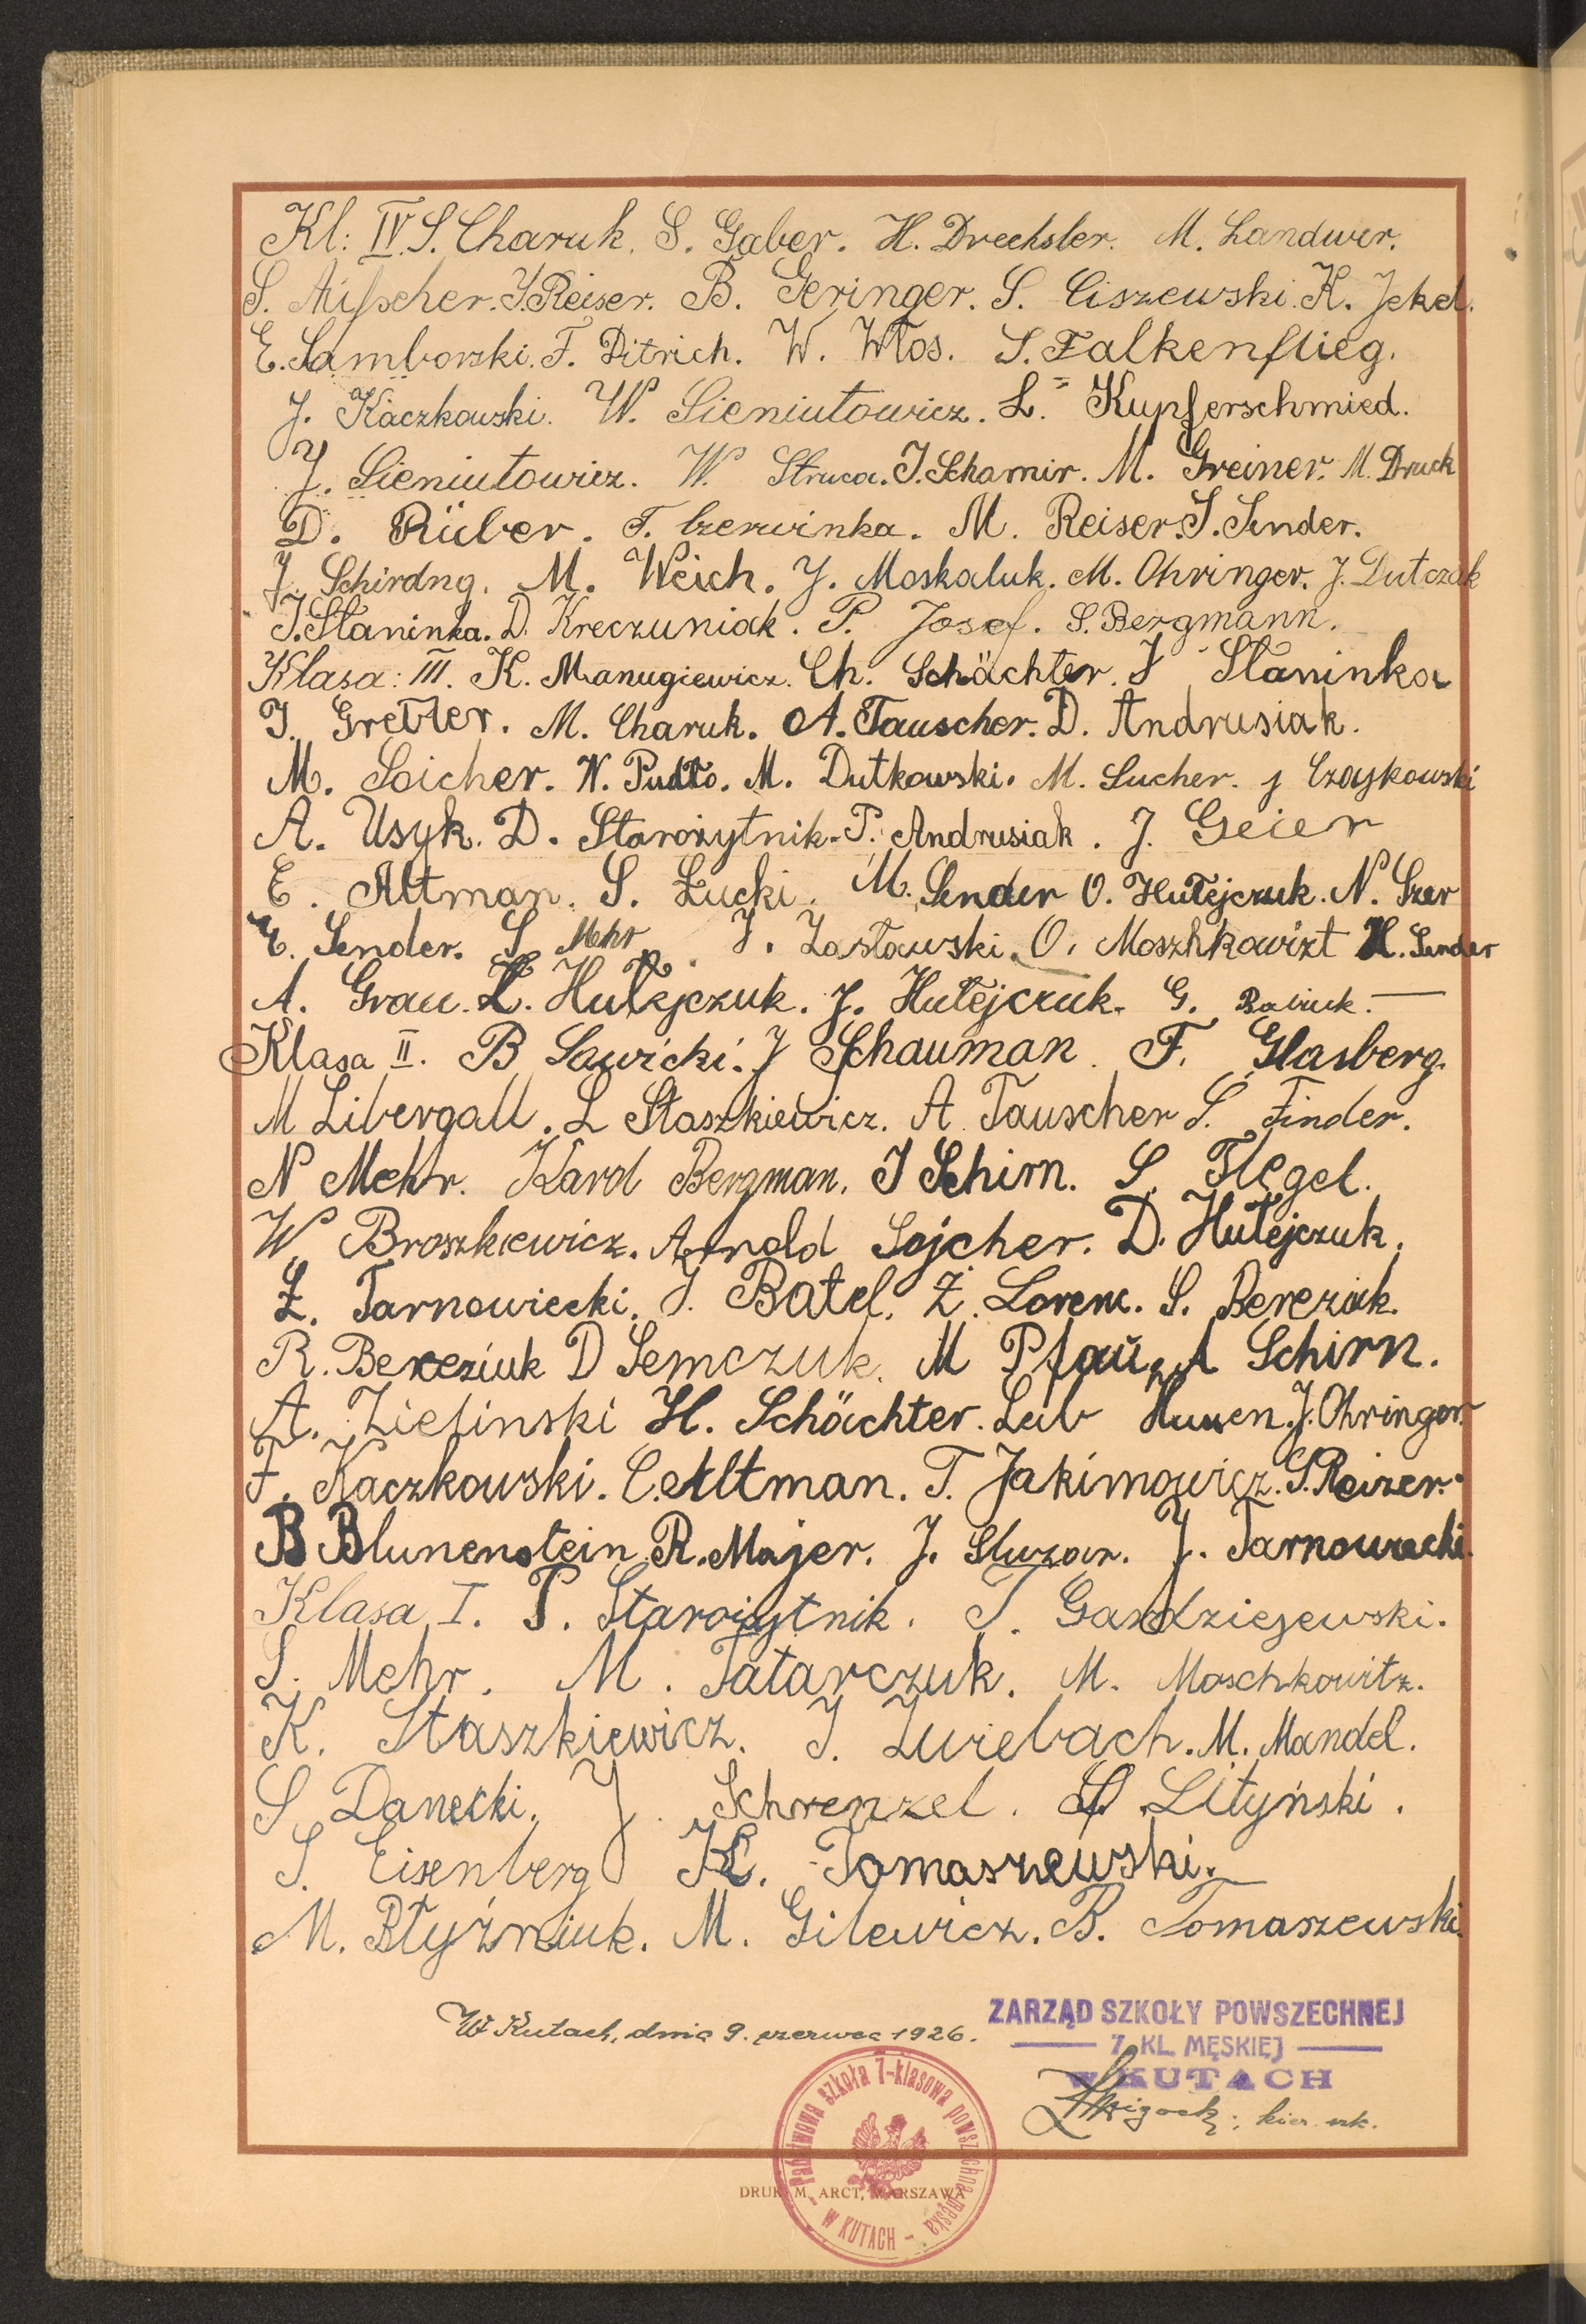 Kl: IV. S. Charuk. S. Gaber. H. Drechsler. M. Landwer.
S. Aufscher. J. Reiser. B. Geringer. S. Ciszewski. K. Jekel.
E. Samborski. F. Ditrich. W. Włos. S. Falkenflieg.
J. Kaczkowski. W. Sieniutowicz. L. Kupferschmied.
J. Sieniutowicz. W. Struca. J. Schamir. M. Greiner. M. Druck
D. Rüber. F. Czerwinka. M. Reiser. S. Sender.
J. Schirdng. M. Weich. J. Moskaluk. M. Ohringer. J. Dutczak
J. Słaninka. D. Kreczuniak. P. Josef. S. Bergmann.
Klasa: III. K. Manugiewicz. Ch. Schächter. J Słaninka
J. Gretler. M. Charuk. A. Tauscher. D. Andrusiak.
M. Soicher. W. Pudło. M. Dutkowski. M. Sucher. J Czaykowski
A. Usyk. D. Starożytnik. P. Andrusiak. J. Geier
E. Altman. S. Łucki. M. Sender O. Hutejczuk. N. Szer
E. Sender. S. Mehr. J. Zasławski. O. Moszhkowizt H. Sender
A. Grau. H. Hutejczuk. J. Hutejczuk. G. Babiuk. —
Klasa II. B Sawicki. J Schauman. F. Glasberg.
M Libergall. L Staszkiewicz. A. Tauscher S. Finder.
N Mehr. Karol Bergman. J Schirn. S. Flegel.
W. Broszkiewicz. Arnold Sojcher. D. Hutejczuk.
Z. Tarnowiecki. J. Batel. Z. Lorenc. S. Bereziuk.
R. Bereziuk D Semczuk. M Pfau, A Schirn.
A. Zieliński H. Schächter. Leib Hussen. J. Ohringer.
F. Kaczkowski. C. Altman. T. Jakimowicz. S. Reizer.
B Blunenstein. R. Majer. J. Sluzar. J. Tarnowiecki.
Klasa I. P. Starożytnik. T. Gandziejewski.
S. Mehr. M. Tatarczuk. M. Moschkowitz.
K. Staszkiewicz. J. Zwiebach. M. Mandel.
S. Danecki. J. Schrenzel. S. Lityński.
S. Eisenberg K. Tomaszewski.
M. Błyźniuk. M. Gilewicz. B. Tomaszewski.
W Kutach, dnia 9. czerwca 1926.
ZARZĄD SZKOŁY POWSZECHNEJ
7 KL. MĘSKIEJ
w KUTACH
kier. szk.
Państwowa szkoła 7-klasowa powszechna męska
- W KUTACH -
DRUK M. ARCT, WARSZAWA